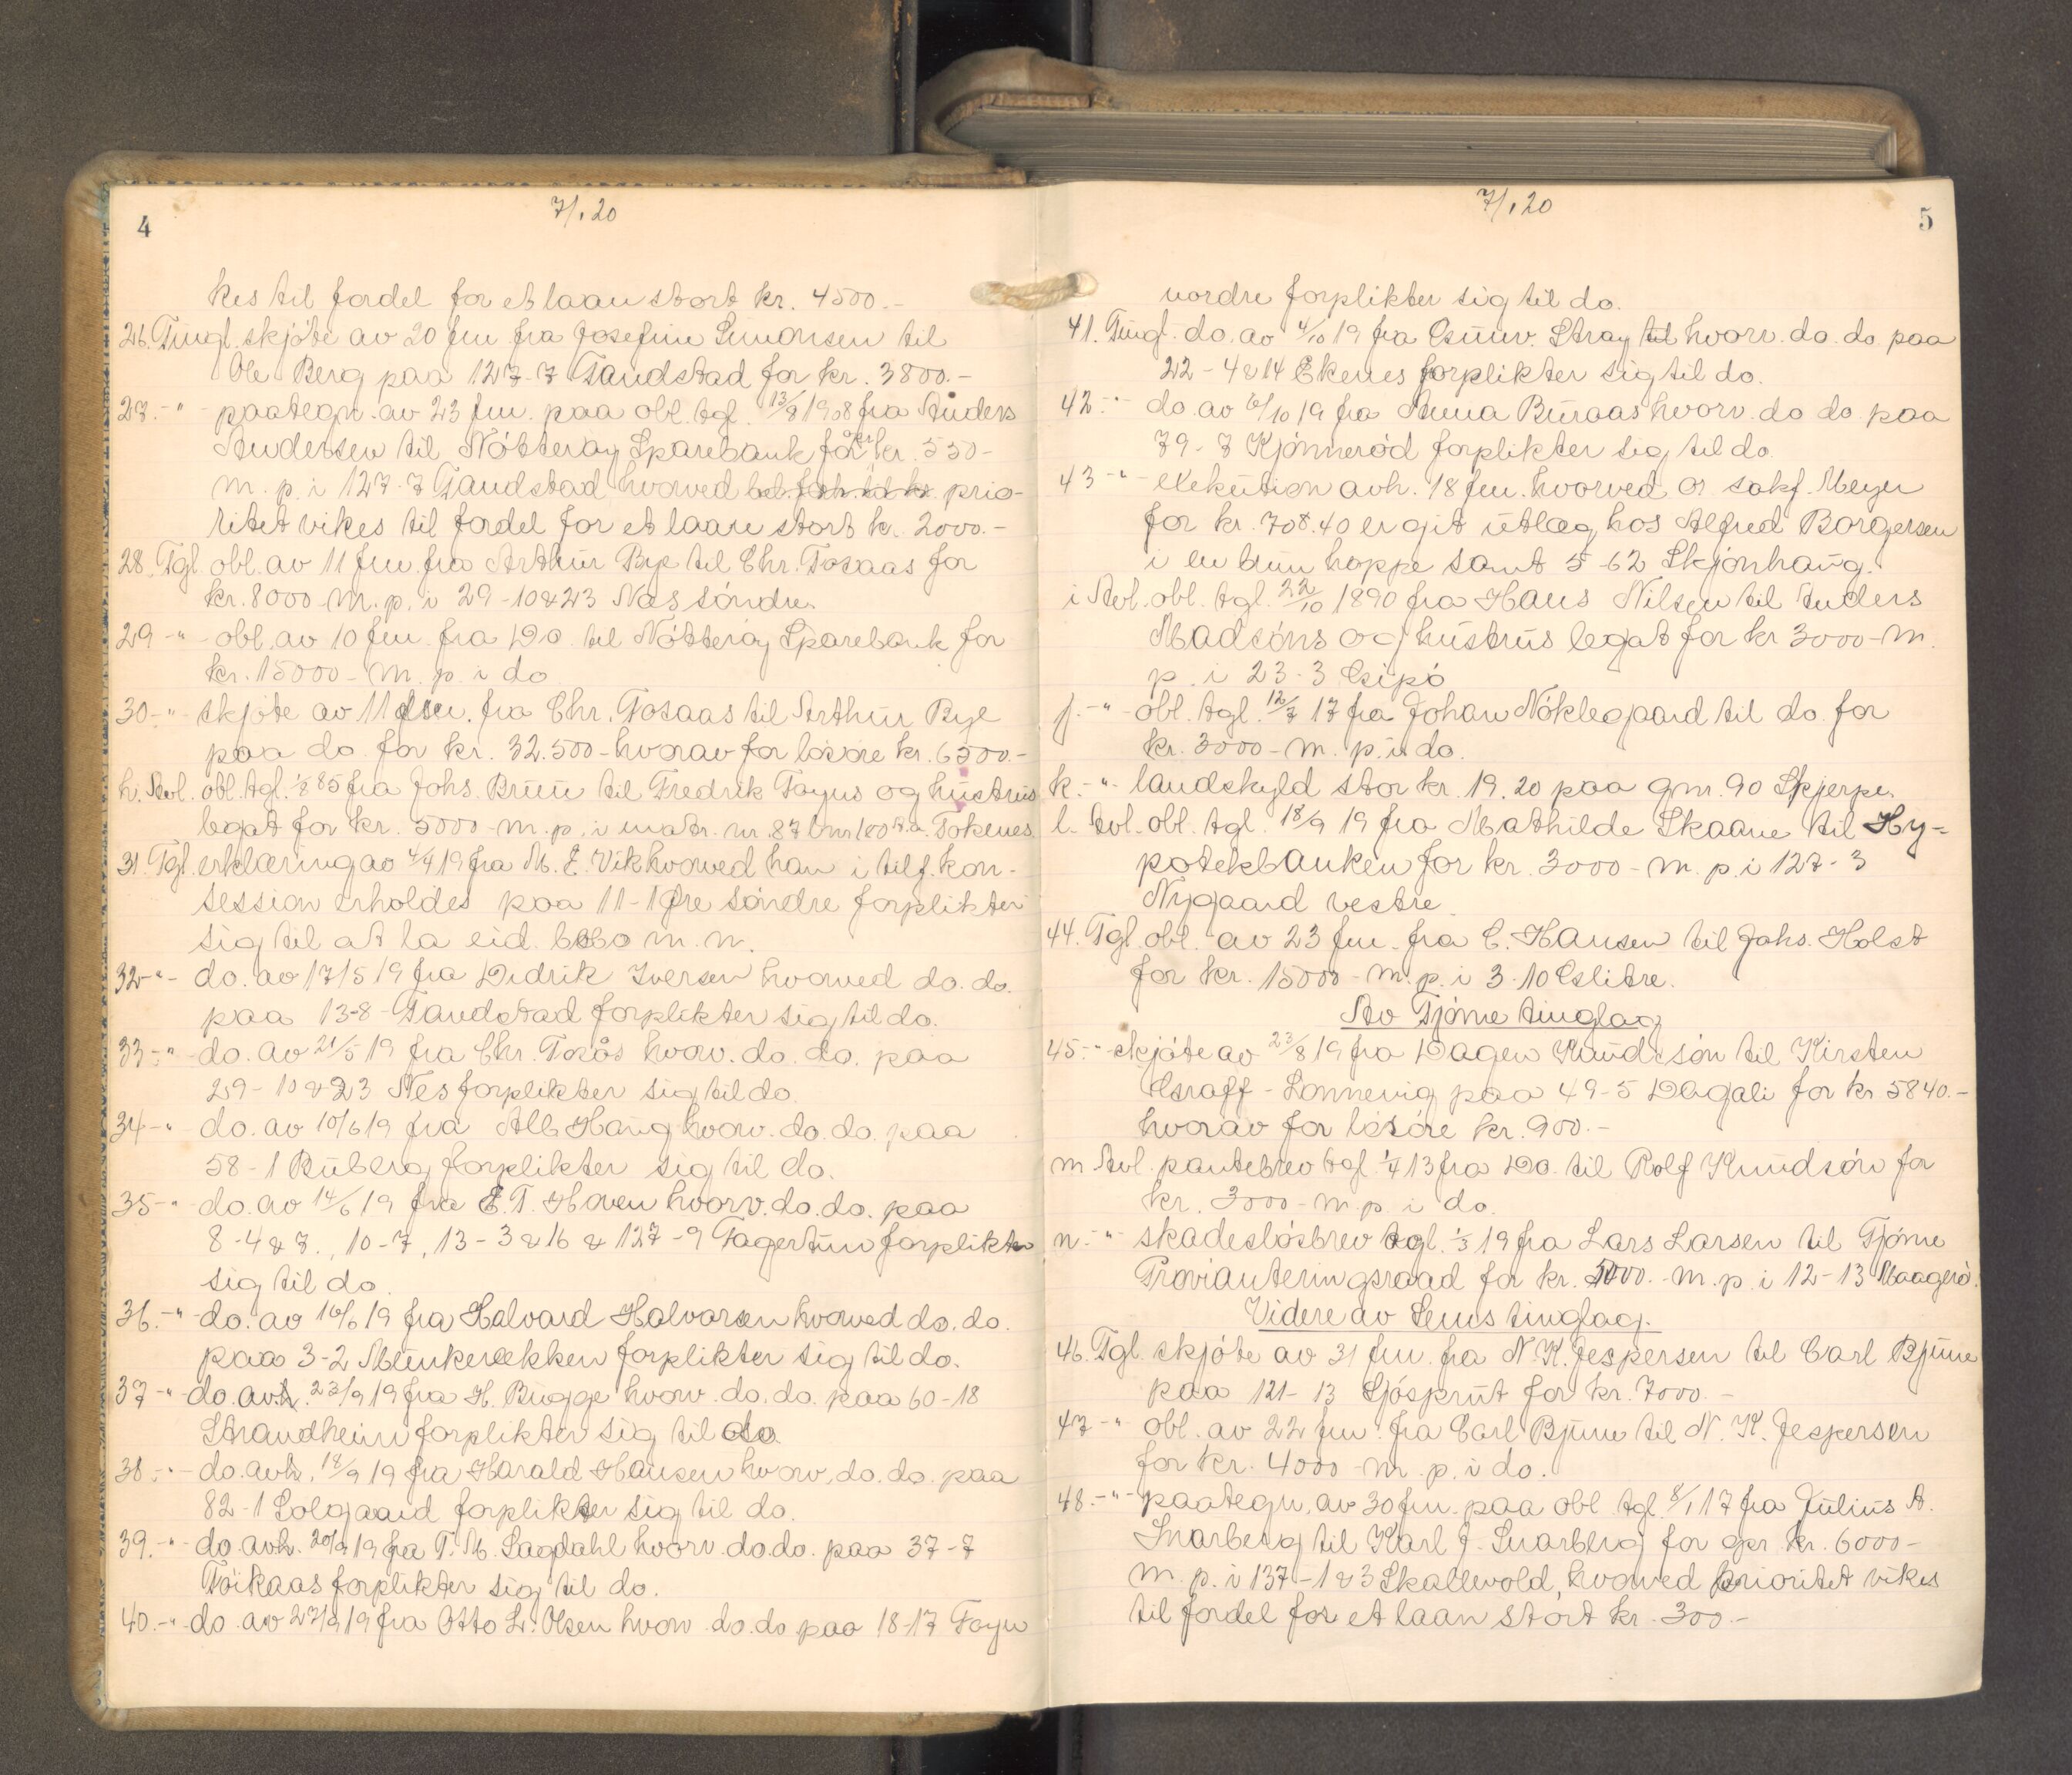 4
7/1 20
kes til fordel for et laan stort kr. 4500.-
26. Tingl. skjøte av 20 f.m. fra Josefine Simonsen til
Ole Berg paa 127-7 Tandstad for kr. 3800.-
27.-"- paategn. av 23 f.m. paa obl. tgl. 13/8 1908 fra Anders
Andersen til Nøtterøy Sparebank for gr kr. 550-
m. p. i 127-7 Tandstad hvorved prio-
ritet vikes til fordel for et laan stort kr. 2000.-
28. Tgl. obl. av 11 f.m. fra Arthur Bye til Chr. Tosaas for
kr. 8000- m. p. i 29-10 & 23 Nes søndre.
29 -"- obl. av 10 f.m. fra Do. til Nøtterøy Sparebank for
kr. 15000- m. p. i do
30 -"- skjøte av 11 f.m. fra Chr. Tosaas til Arthur Bye
paa do. for kr. 32.500- hvorav for løsøre kr. 6500.-
h. Avl. obl. tgl. 1/8 85 fra Johs. Bruu til Fredrik Føyns og hustrus
legat for kr. 5000- m. p. i matr. nr. 87 bnr 100 Tokenes
31. Tgl. erklæring av 4/4 19 fra M. E. Vik hvorved han i tilf. kon-
session erholdes paa 11-1 Øre søndre forplikter
sig til at la eid. bebo m. m.
32 -"- do. av 17/5 19 fra Didrik Iversen hvorved do. do.
paa 13-8 Tandstad forplikter sig til do.
33 -"- do. av 21/5 19 fra Chr. Tosås hvorv. do. do. paa
29-10 & 23 Nes forplikter sig til do.
34 -"- do. av 10/6 19 fra Alb. Haug hvorv. do. do. paa
58-1 Buberg forplikter sig til do.
35 -"- do. av 14/6 19 fra E. T. Hoven hvorv. do. do. paa
8-4 & 7., 10-7, 13-3 & 16 & 127-9 Fagertun forplikter
sig til do
36. -"- do. av 16/6 19 fra Halvard Halvorsen hvorved do. do.
paa 3-2 Munkerekken forplikter sig til do.
37 -"- do. avh. 23/9 19 fra H. Bugge hvorv. do. do. paa 60-18
Strandheim forplikter sig til do.
38 -"- do. avh. 18/9 19 fra Harald Hansen hvorv. do. do. paa
82-1 Solgaard forplikter sig til do.
39. -"- do avh. 20/9 19 fra T. M. Sagdahl hvorv. do. do. paa 37-7
Tøikaas forplikter sig til do.
40. -"- do av 27/9 19 fra Otto L. Olsen hvorv. do. do paa 18-17 Føyn
7/1 20
5
nordre forplikter sig til do.
41. Tingl. do. av 4/10 19 fra Gunv. Stray til hvorv. do. do. paa
22-4 & 14 Ekenes forplikter sig til do.
42 -"- do. av 6/10 19 fra Anna Buraas hvorv. do do. paa
79-7 Kjønnerød forplikter sig til do.
43 -"- exekution avh. 18 f.m. hvorved or sakf. Meyer
for kr. 708.40 er git utlæg hos Alfred Borgersen
i en brun hoppe samt 5-62 Skjønhaug.
i Avl. obl. tgl. 22/10 1890 fra Hans Nilsen til Anders
Madsøns og hustrus legat for kr 3000- m.
p. i 23-3 Gipø
j. -"- obl. tgl. 12/7 17 fra Johan Nøklegaard til do. for
kr. 3000- m. p. i do.
k. -"- landskyld stor kr. 19.20 paa gnr. 90 Skjerpe.
l. Avl. obl. tgl. 18/9 19 fra Mathilde Skaane til Hy-
potekbanken for kr. 3000- m. p. i 127-3
Nygaard vestre.
44. Tgl. obl. av 23 f.m. fra C. Hansen til Johs. Holst
for kr. 15000- m. p. i 3-10 Gslitre.
Av Tjøme tinglag
45. -"- skjøte av 23/8 19 fra Dagen Knudsøn til Kirsten
Graff-Lonnevig paa 49-5 Dagali for kr 5840.-
hvorav for løsøre kr. 900.-
m Avl. pantebrev tgl. 1/4 13 fra Do. til Rolf Knudsøn for
kr. 3000- m. p. i do.
n. -"- skadesløsbrev tgl. 1/3 19 fra Lars Larsen til Tjøme
Provianteringsraad for kr. 5000.- m. p. i 12-13 Maagerø.
Videre av Sems tinglag.
46. Tgl. skjøte av 31 f.m. fra N. K. Jespersen til Carl Bjune
paa 121-13 Sjøsprut for kr. 7000.-
47 -"- obl. av 22 f.m. fra Carl Bjune til N. K. Jespersen
for kr. 4000- m. p. i do.
48. -"- paategn. av 30 f.m. paa obl. tgl. 8/1 17 fra Julius A.
Snarberg til Karl J. Snarberg for gr. kr. 6000-
m. p. i 137-1 & 3 Skallevold, hvorved prioritet vikes
til fordel for et laan stort kr. 300.-